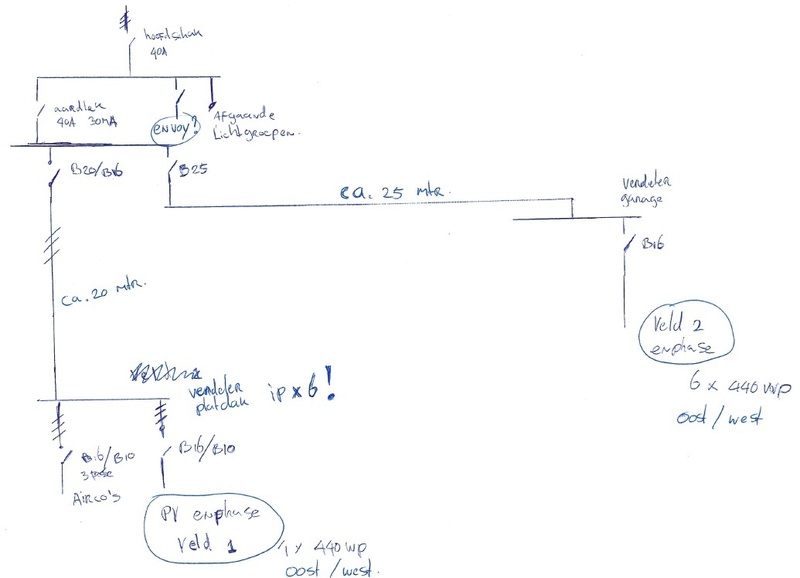 hoofdschak
40A
aardlek
40A 30MA
envoy?
Afgaande
Lichtgroepen.
B20/B16
B25
ca. 25 mtr.
verdeler
garage
B16
ca. 20 mtr.
Veld 2
enphase
6 x 440 wp
oost / west
verdeler
platdak
ipx6!
B16/B10
3 fase
Airco's
B16/B10
PV enphase
Veld 1
x 440 wp
oost / west.